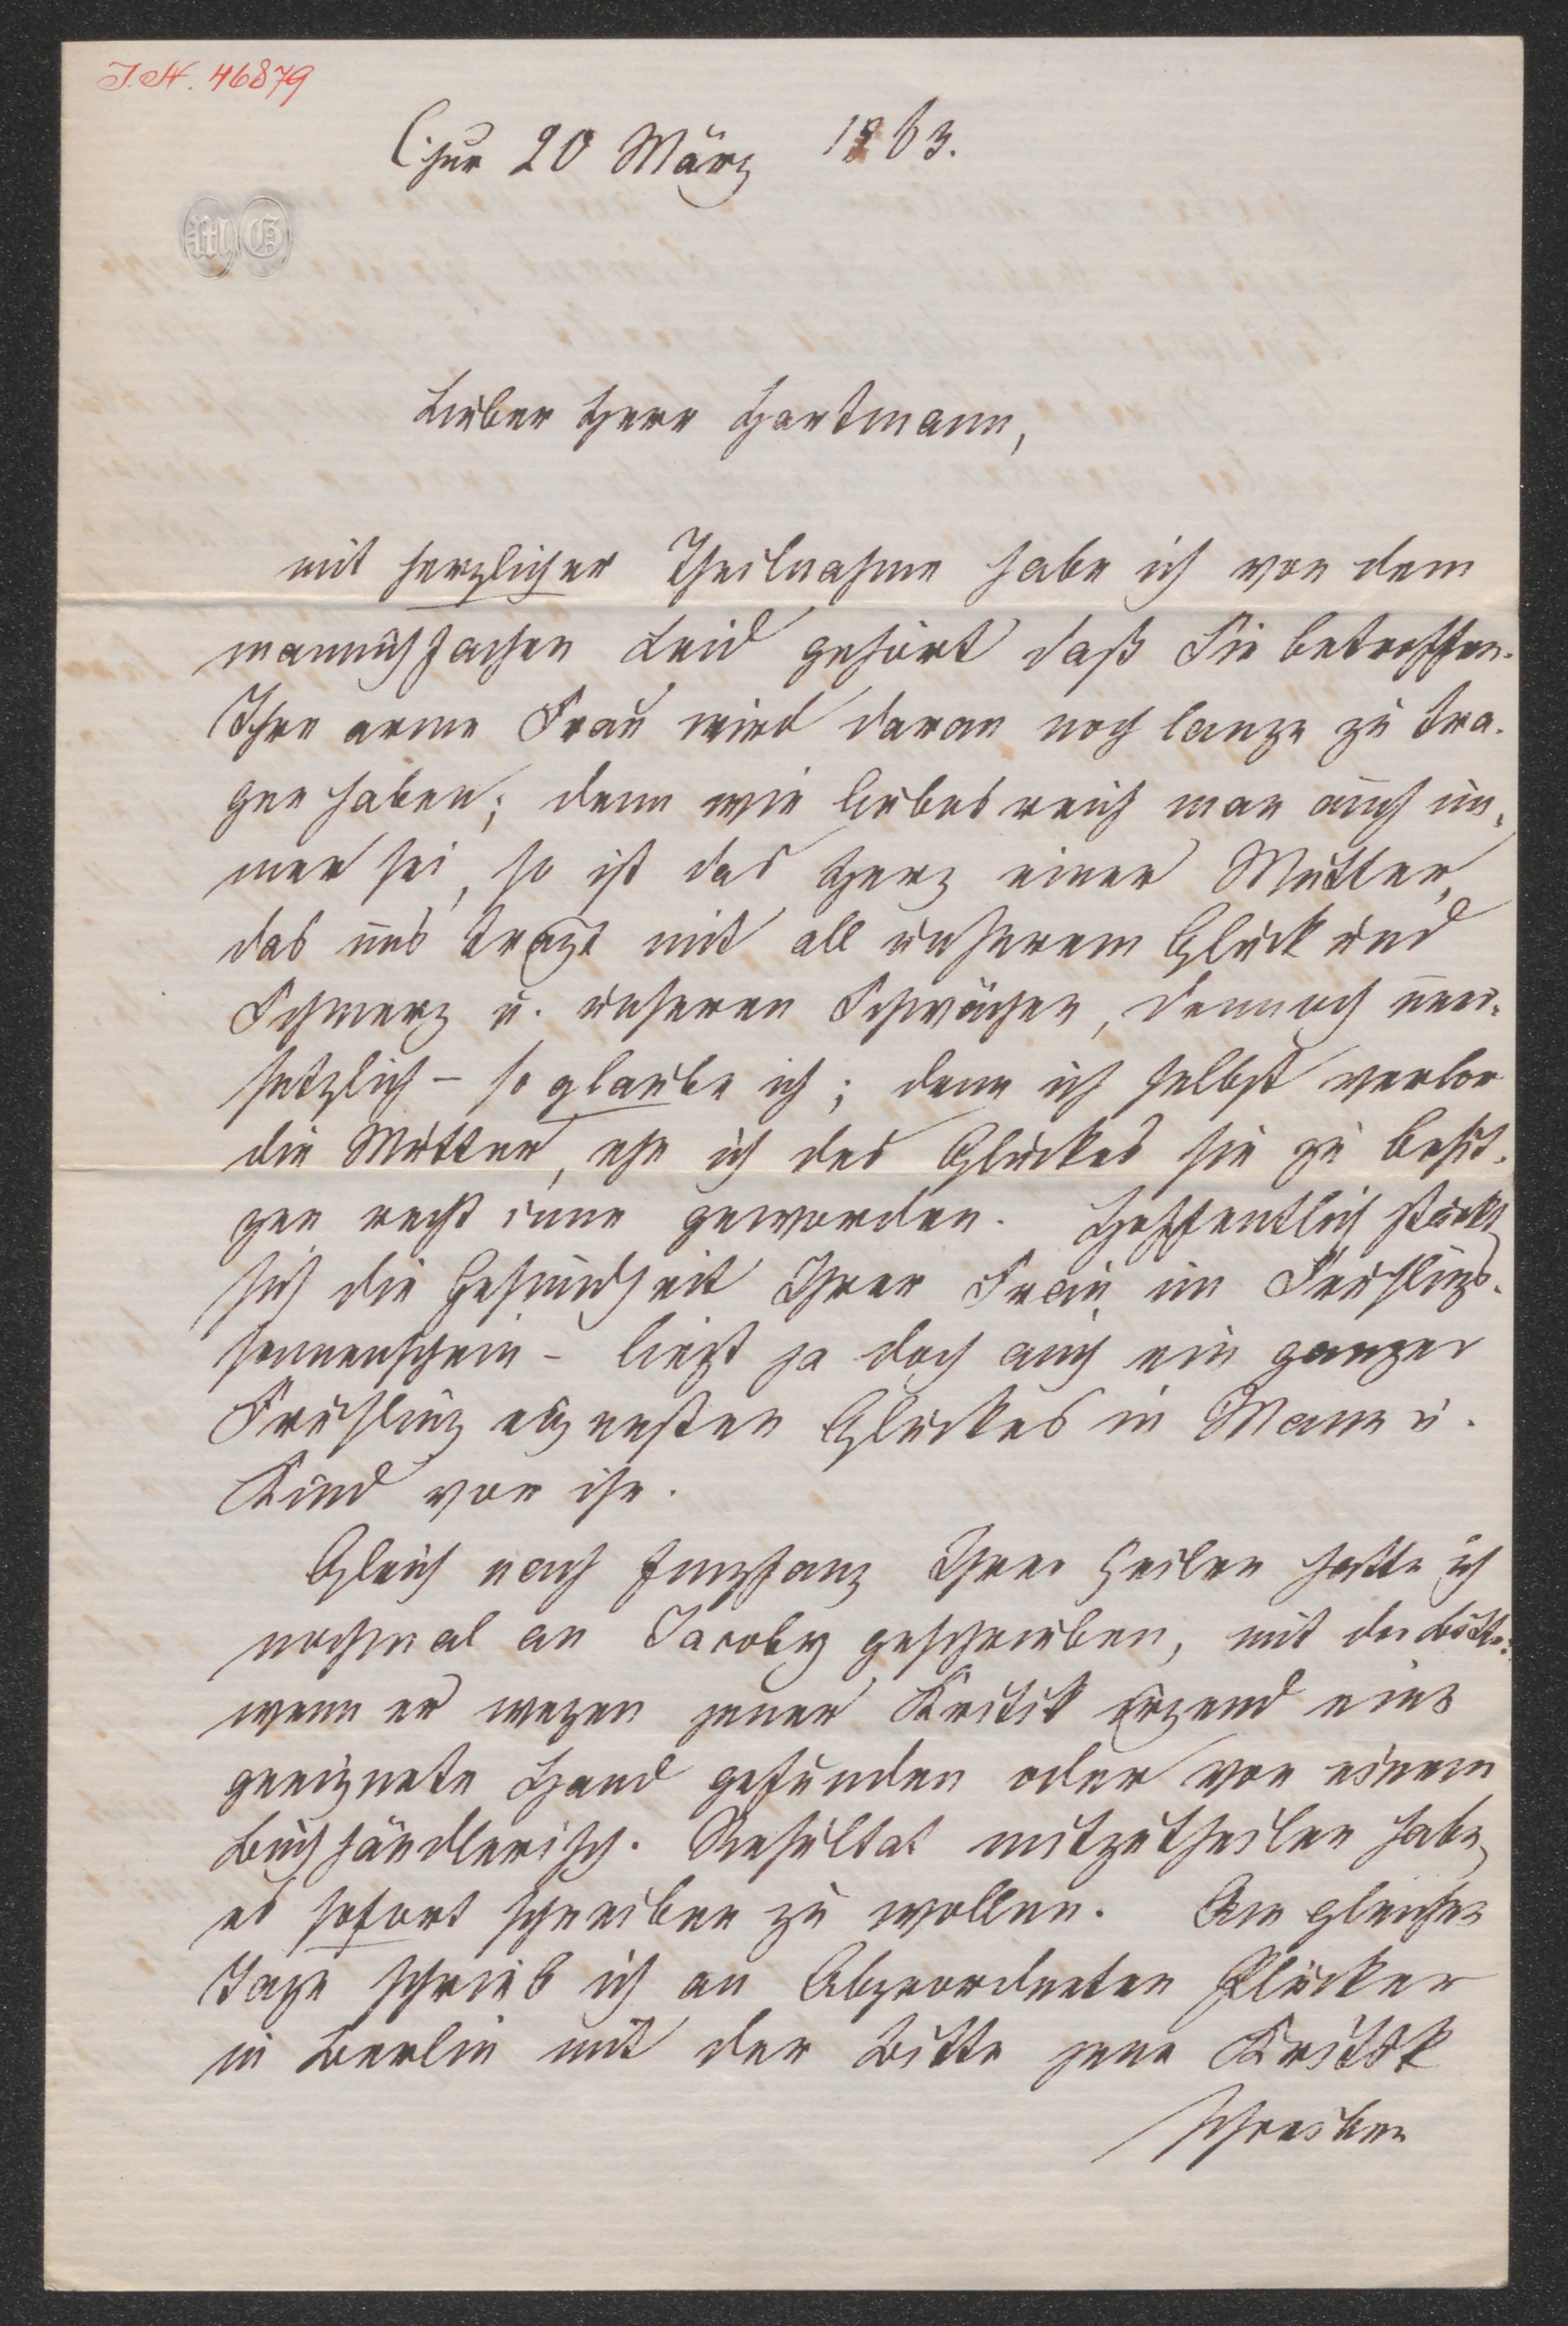 I.N. 46879
Chur 20 März 1863.
MG
Lieber Herr Hartmann,
mit herzlicher Theilnahme habe ich von dem
mannichfachen Leid gehört daß Sie betroffen.
Ihre arme Frau wird daran noch lange zu tra-
gen haben; denn wie liebesreich man auch im-
mer sei, so ist das Herz einer Mutter,
das uns trägt mit all unserem Glück und
Schmerz u. unseren Schwächen, dennoch uner-
setzlich – so glaube ich; denn ich selbst verlor
die Mutter, ehe ich des Glückes sie zu besit-
zen recht inne geworden. Hoffentlich stärkt
sich die Gesundheit Ihrer Frau im Frühlings-
sonnenschein – liegt ja doch auch ein ganzer
Frühling eigensten Glückes in Mann u.
Kind vor ihr.
Gleich nach Empfang Ihrer Zeilen hatte ich
nochmal an Jacoby geschrieben, mit der Bitte:
wenn er wegen jener Kritik irgend eine
geeignete Hand gefunden oder von einem
buchhändlerisch. Resultat mitzutheilen habe,
es sofort schreiben zu wollen. Am gleichen
Tage schrieb ich an Abgeordneten
in Berlin mit der Bitte jene Kritik
schreiben